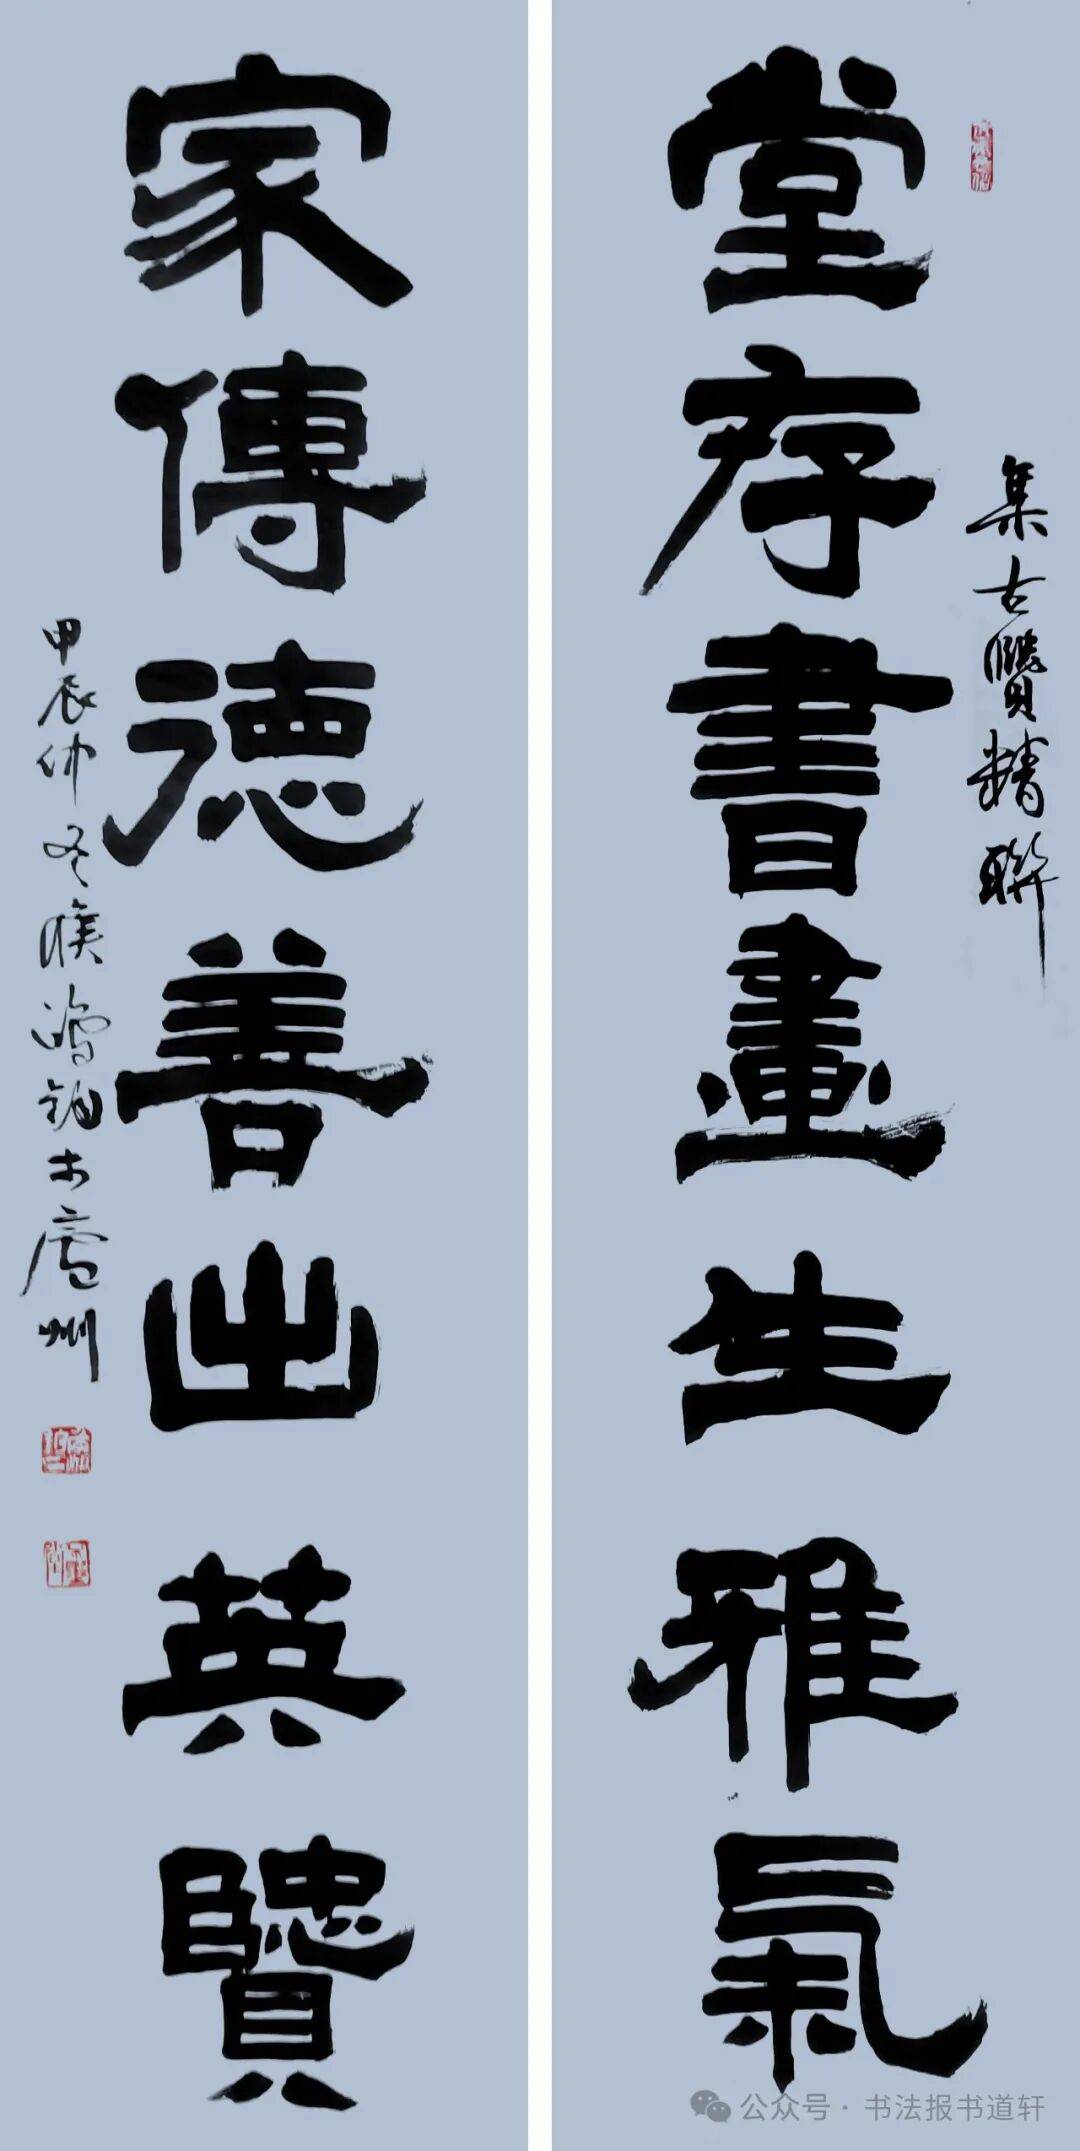 集古贒精聯
堂存書畫生雅氣
家傳德善出英贒
甲辰仲冬鴻鈞於廬州
公众号·书法报书道轩